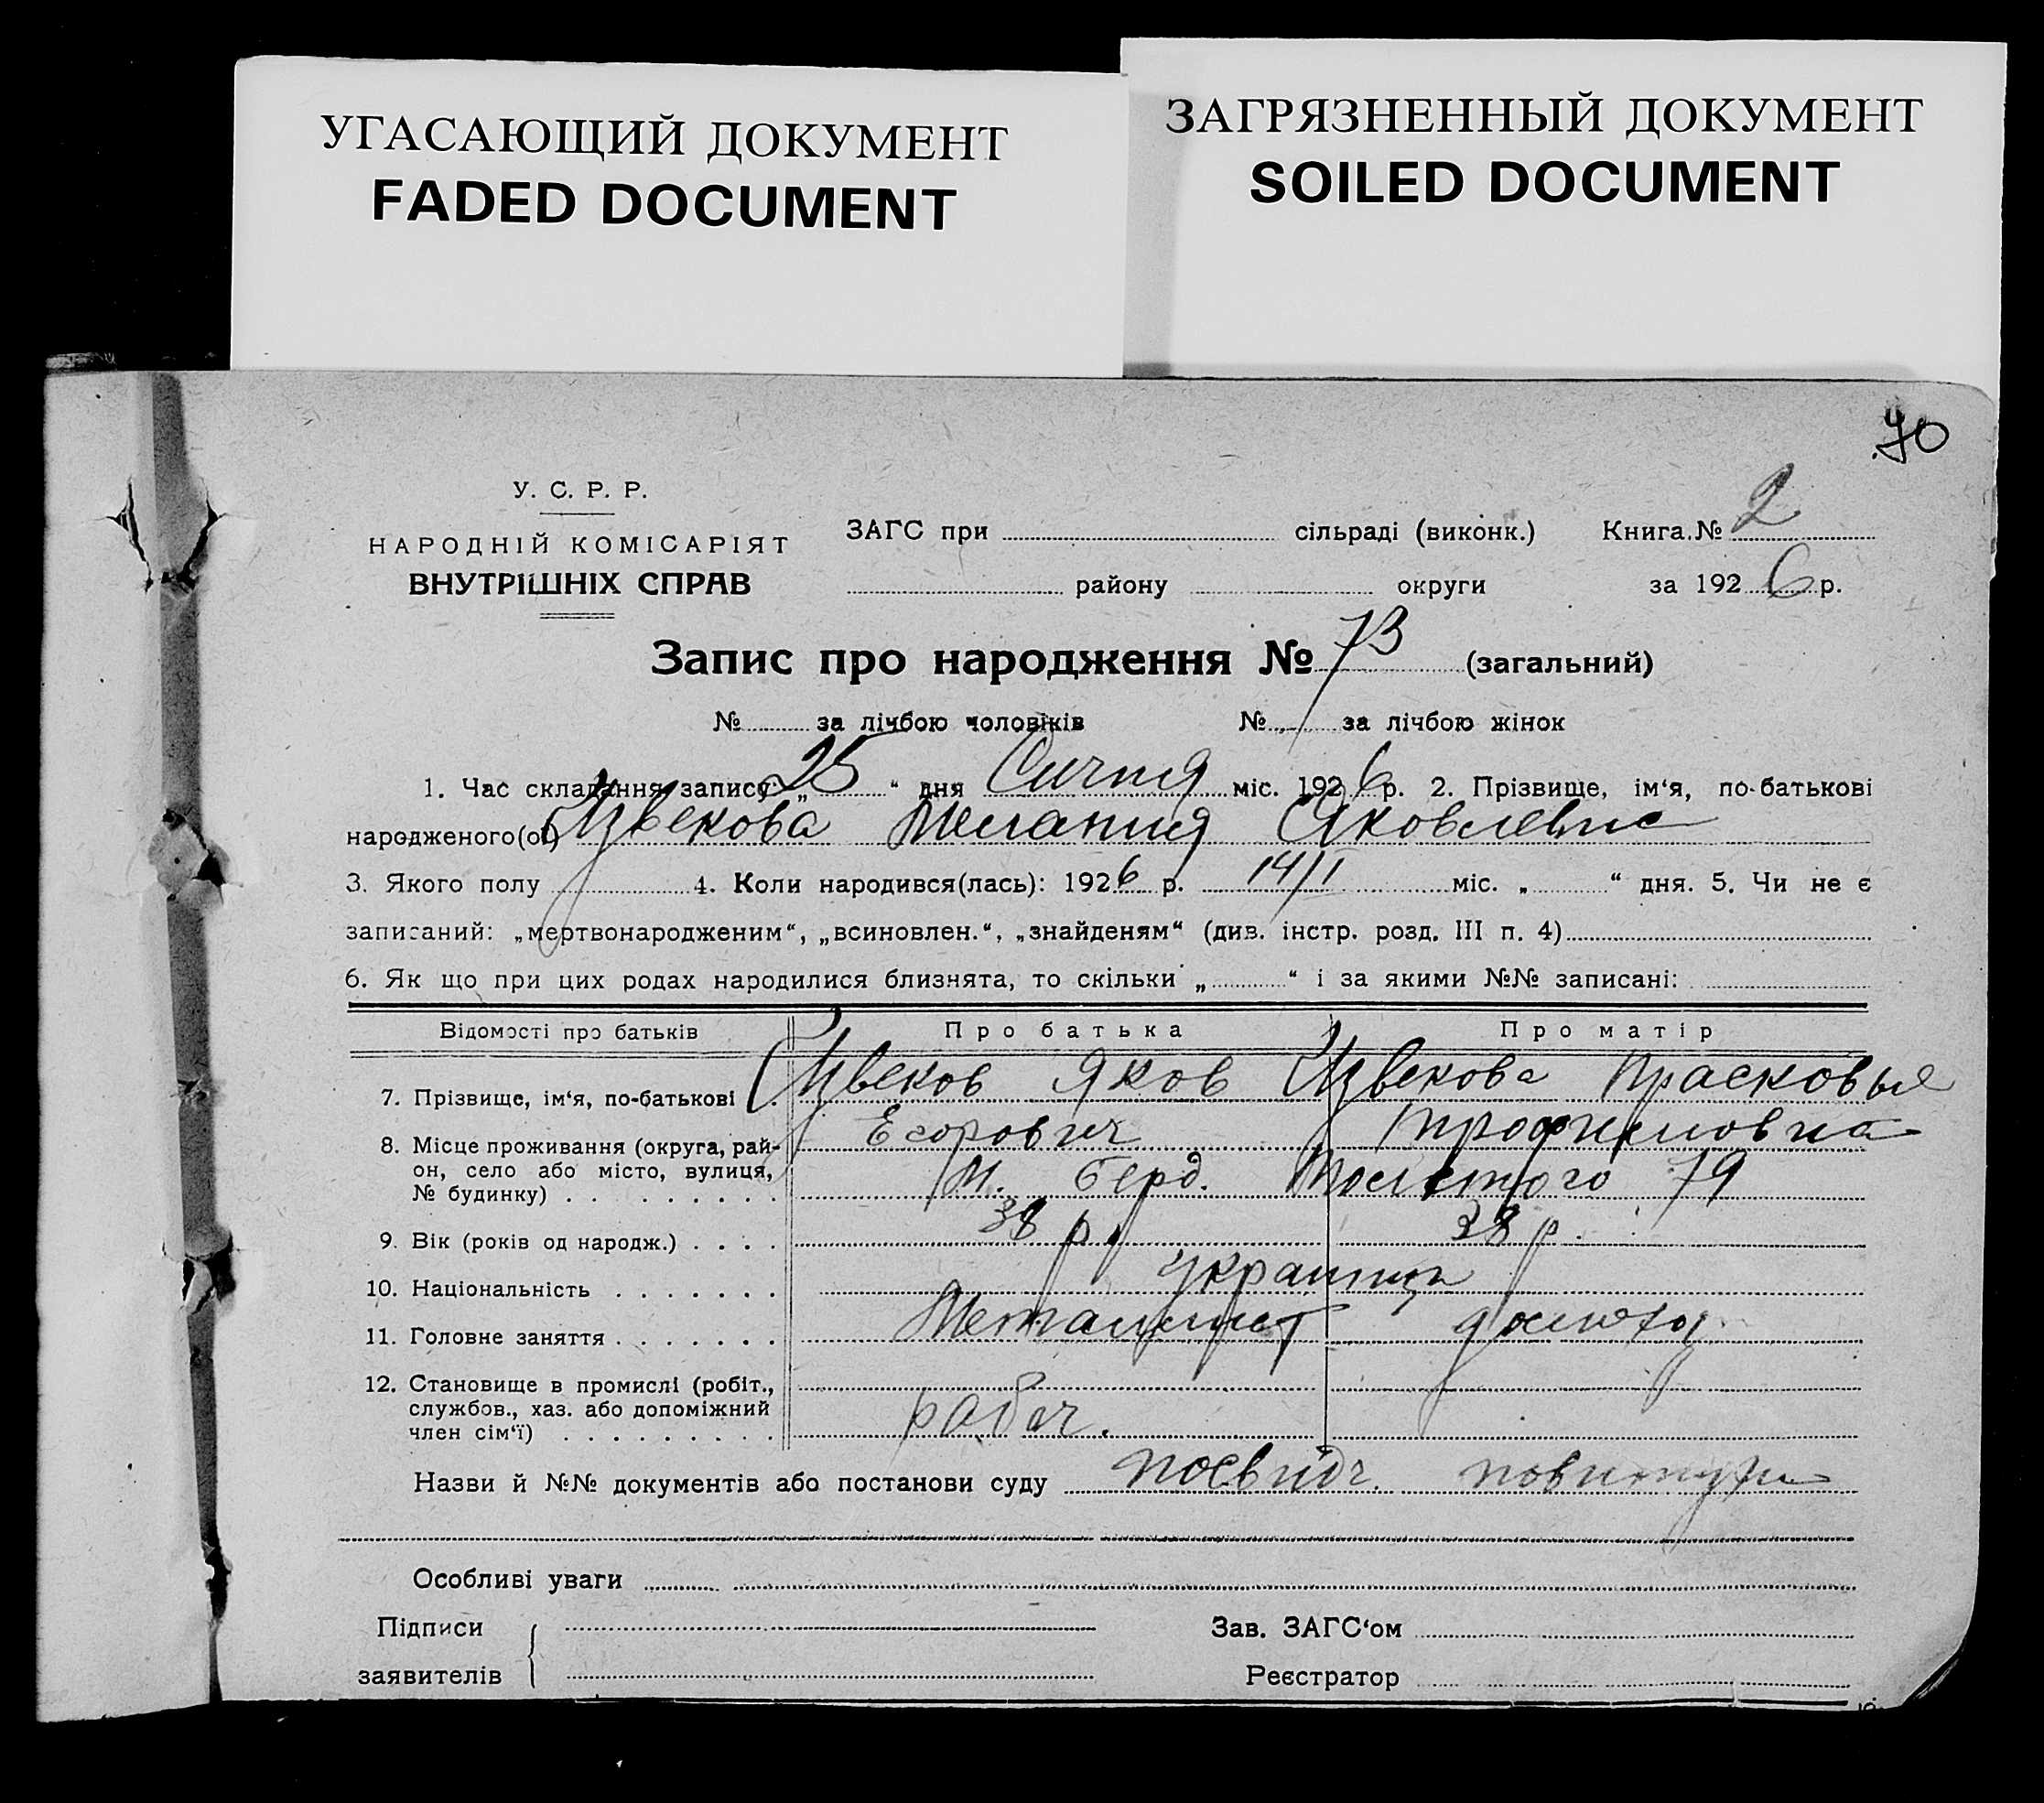 УГАСАЮЩИЙ ДОКУМЕНТ
FADED DOCUMENT
ЗАГРЯЗНЕННЫЙ ДОКУМЕНТ
SOILED DOCUMENT
70
У. С. Р. Р.
НАРОДНІЙ КОМІСАРІЯТ
ВНУТРІШНІХ СПРАВ
ЗАГС при сільраді (виконк.) Книга № 2
району округи за 1926 р.
Запис про народження № 73 (загальний)
№ за лічбою чоловіків № за лічбою жінок
1. Час складання запису „25“ дня Січня міс. 1926 р. 2. Прізвище, ім‘я, по-батькові
народженого(ої) Извекова Мелания Яковлевна
3. Якого полу 4. Коли народився(лась): 1926 р. 14/I міс. „ “ дня. 5. Чи не є
записаний: „мертвонародженим“, „всиновлен.“, „знайденям“ (див. інстр. розд. III п. 4)
6. Як що при цих родах народилися близнята, то скільки „ “ і за якими №№ записані:
Відомості про батьків Про батька Про матір
7. Прізвище, ім‘я, по-батькові Извеков Яков Извекова Прасковья
Егорович Трофимовна
8. Місце проживання (округа, рай-
он, село або місто, вулиця,
№ будинку) М. Берд. Толстого 79
9. Вік (років од народж.) 38 р. 38 р.
10. Національність українці
11. Головне заняття Металист домохоз
12. Становище в промислі (робіт.,
службов., хаз. або допоміжний
член сім‘ї) рабоч.
Назви й №№ документів або постанови суду посвідч. повитухи
Особливі уваги
Підписи
заявителів
Зав. ЗАГС‘ом
Реєстратор